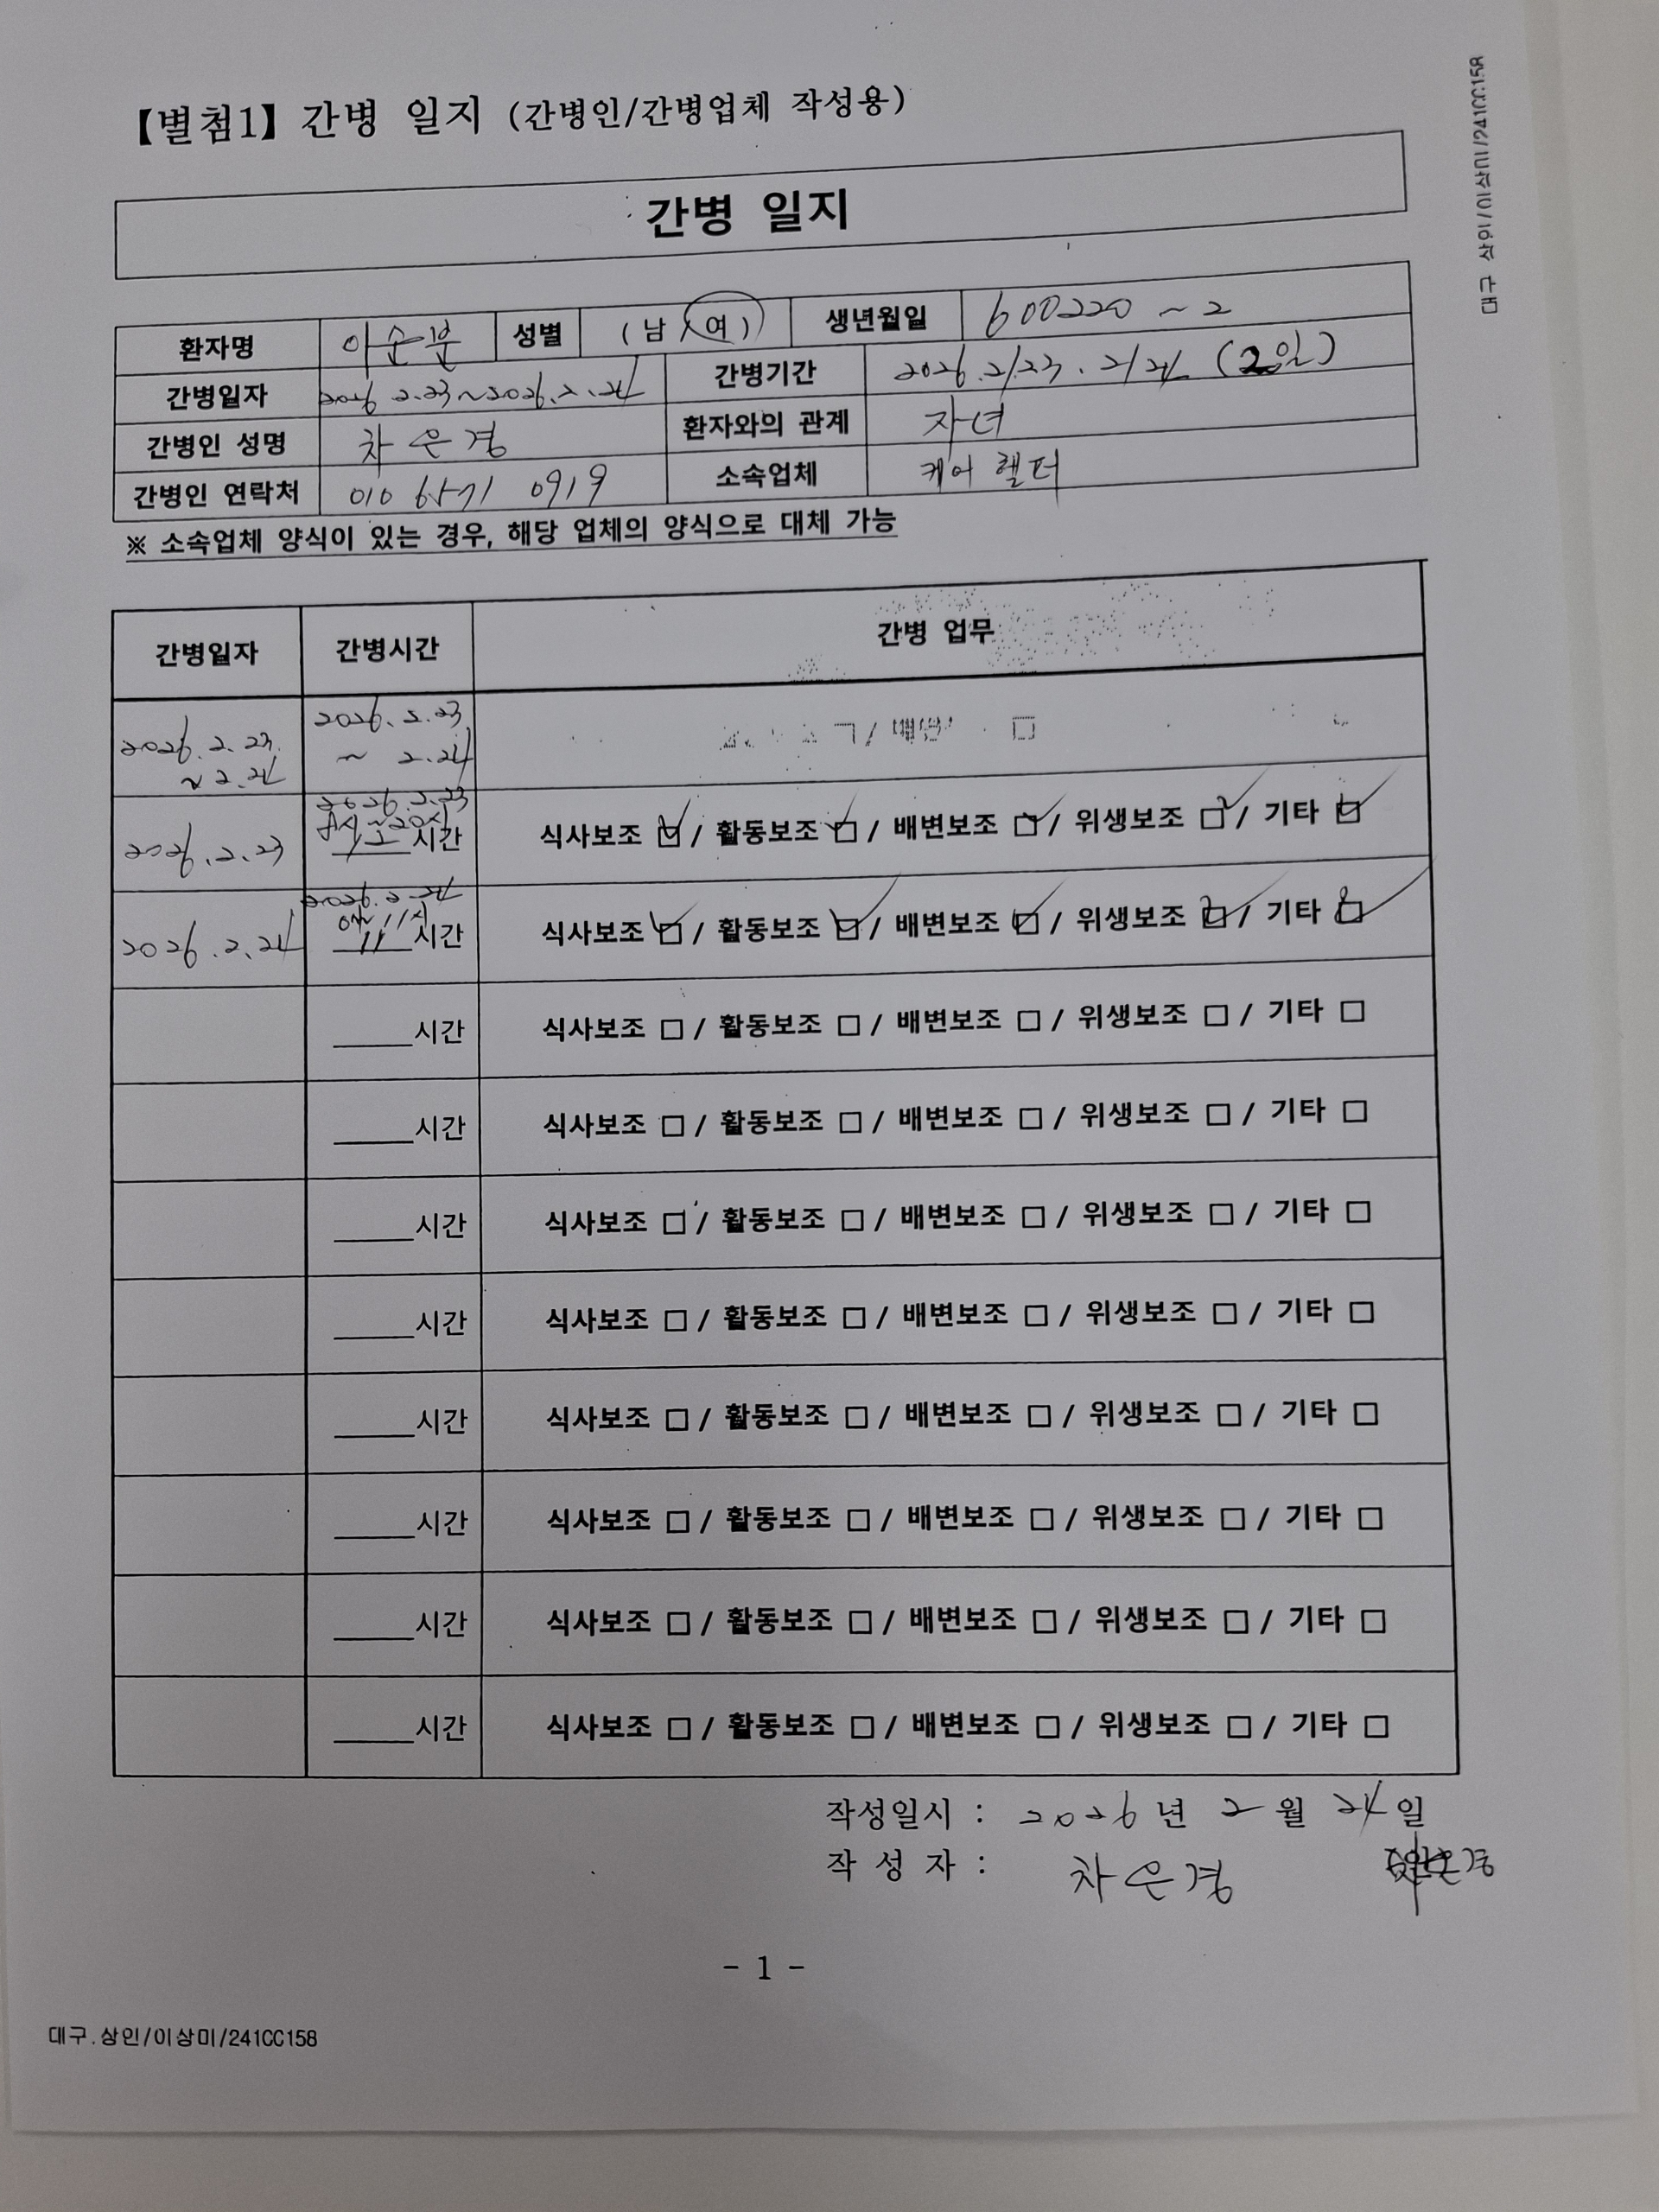 대구 상인/이상미/241CC158
【별첨1】 간병 일지 (간병인/간병업체 작성용)
간병 일지
환자명 이순분 성별 (남/여) 생년월일 600220 ~ 2
간병일자 2026. 2. 23 ~ 2026. 2. 24 간병기간 2026. 2/23. 2/24 (2일)
간병인 성명 차은경 환자와의 관계 자녀
간병인 연락처 010 6571 0919 소속업체 케어 헬터
※ 소속업체 양식이 있는 경우, 해당 업체의 양식으로 대체 가능
간병일자 간병시간 간병 업무
2026. 2. 23. ~ 2. 24 2026. 2. 23 ~ 2. 24
2026. 2. 23 2026. 2. 23 ~20시 12 시간 식사보조 ☑ / 활동보조 ☑ / 배변보조 ☑ / 위생보조 ☑ / 기타 ☑
2026. 2. 24 2026. 2. 24 0~11시 11 시간 식사보조 ☑ / 활동보조 ☑ / 배변보조 ☑ / 위생보조 ☑ / 기타 ☑
_____시간 식사보조 □ / 활동보조 □ / 배변보조 □ / 위생보조 □ / 기타 □
_____시간 식사보조 □ / 활동보조 □ / 배변보조 □ / 위생보조 □ / 기타 □
_____시간 식사보조 □ / 활동보조 □ / 배변보조 □ / 위생보조 □ / 기타 □
_____시간 식사보조 □ / 활동보조 □ / 배변보조 □ / 위생보조 □ / 기타 □
_____시간 식사보조 □ / 활동보조 □ / 배변보조 □ / 위생보조 □ / 기타 □
_____시간 식사보조 □ / 활동보조 □ / 배변보조 □ / 위생보조 □ / 기타 □
_____시간 식사보조 □ / 활동보조 □ / 배변보조 □ / 위생보조 □ / 기타 □
_____시간 식사보조 □ / 활동보조 □ / 배변보조 □ / 위생보조 □ / 기타 □
작성일시 : 2026 년 2 월 24 일
작 성 자 : 차은경
- 1 -
대구.상인/이상미/241CC158